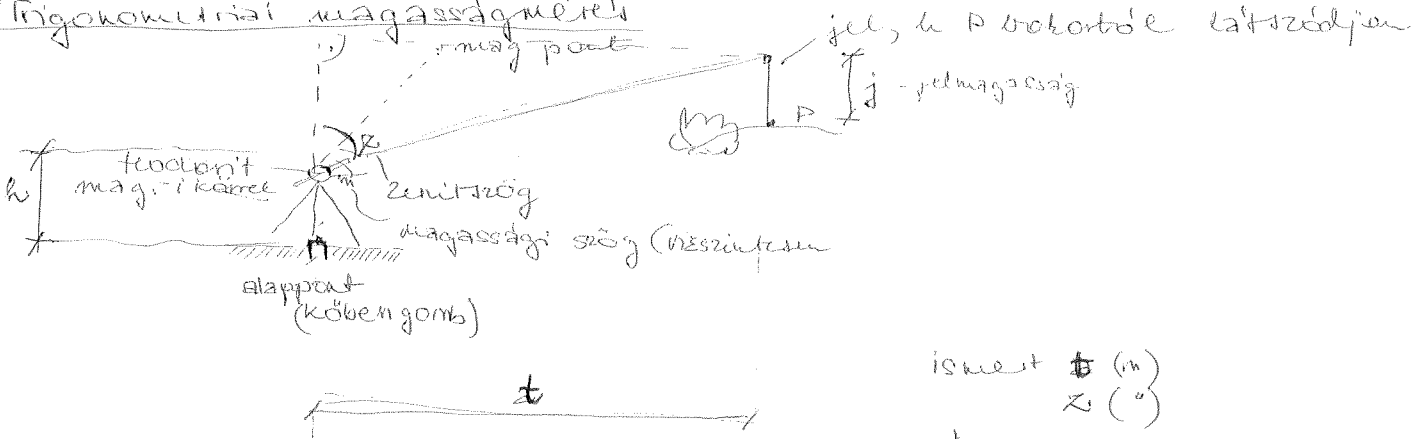 Trigonometriai magasságmérés
mag pont
jel, h P bokortól látszódjon
j - jelmagasság
P
z
teodolit
mag.-i körrel
m
h
zenitszög
magassági szög (vízszintesen
A
alappont
(kőben gomb)
t
ismert t (m)
z (")